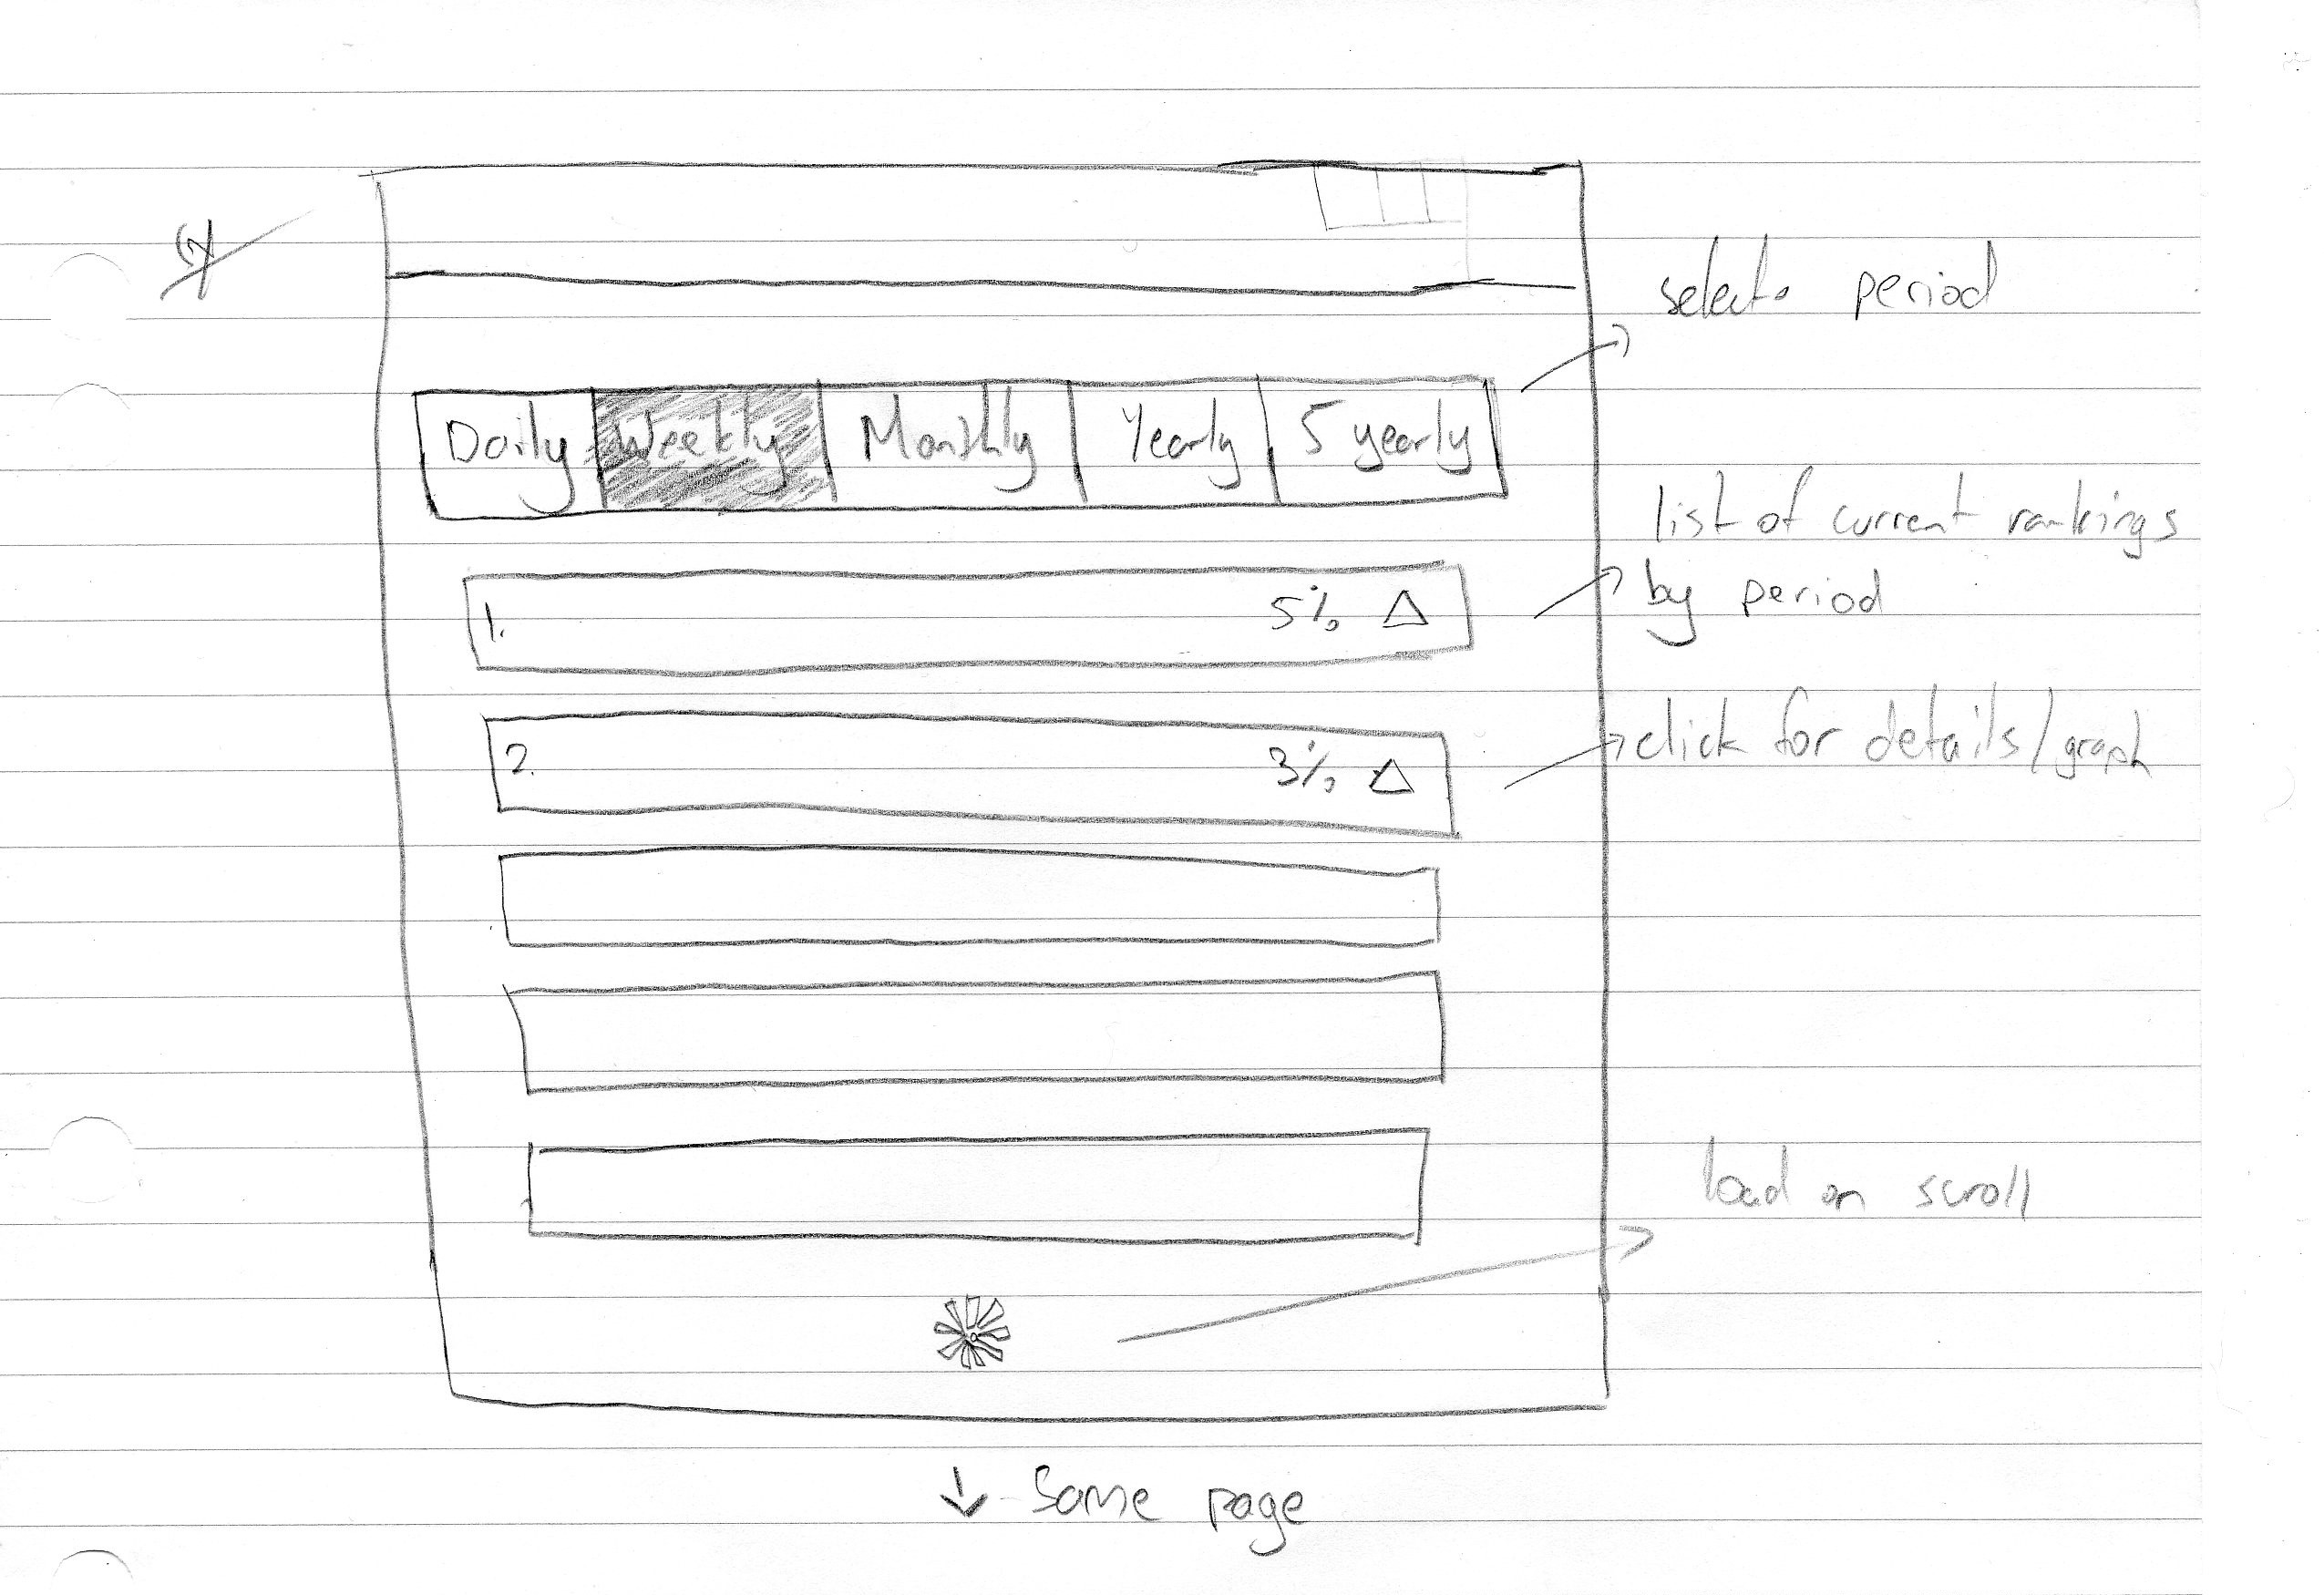 selects period
Daily Weekly Monthly Yearly 5 yearly
list of current rankings
by period
1. 5% △
click for details/graph
2. 3% △
load on scroll
↓ Same page